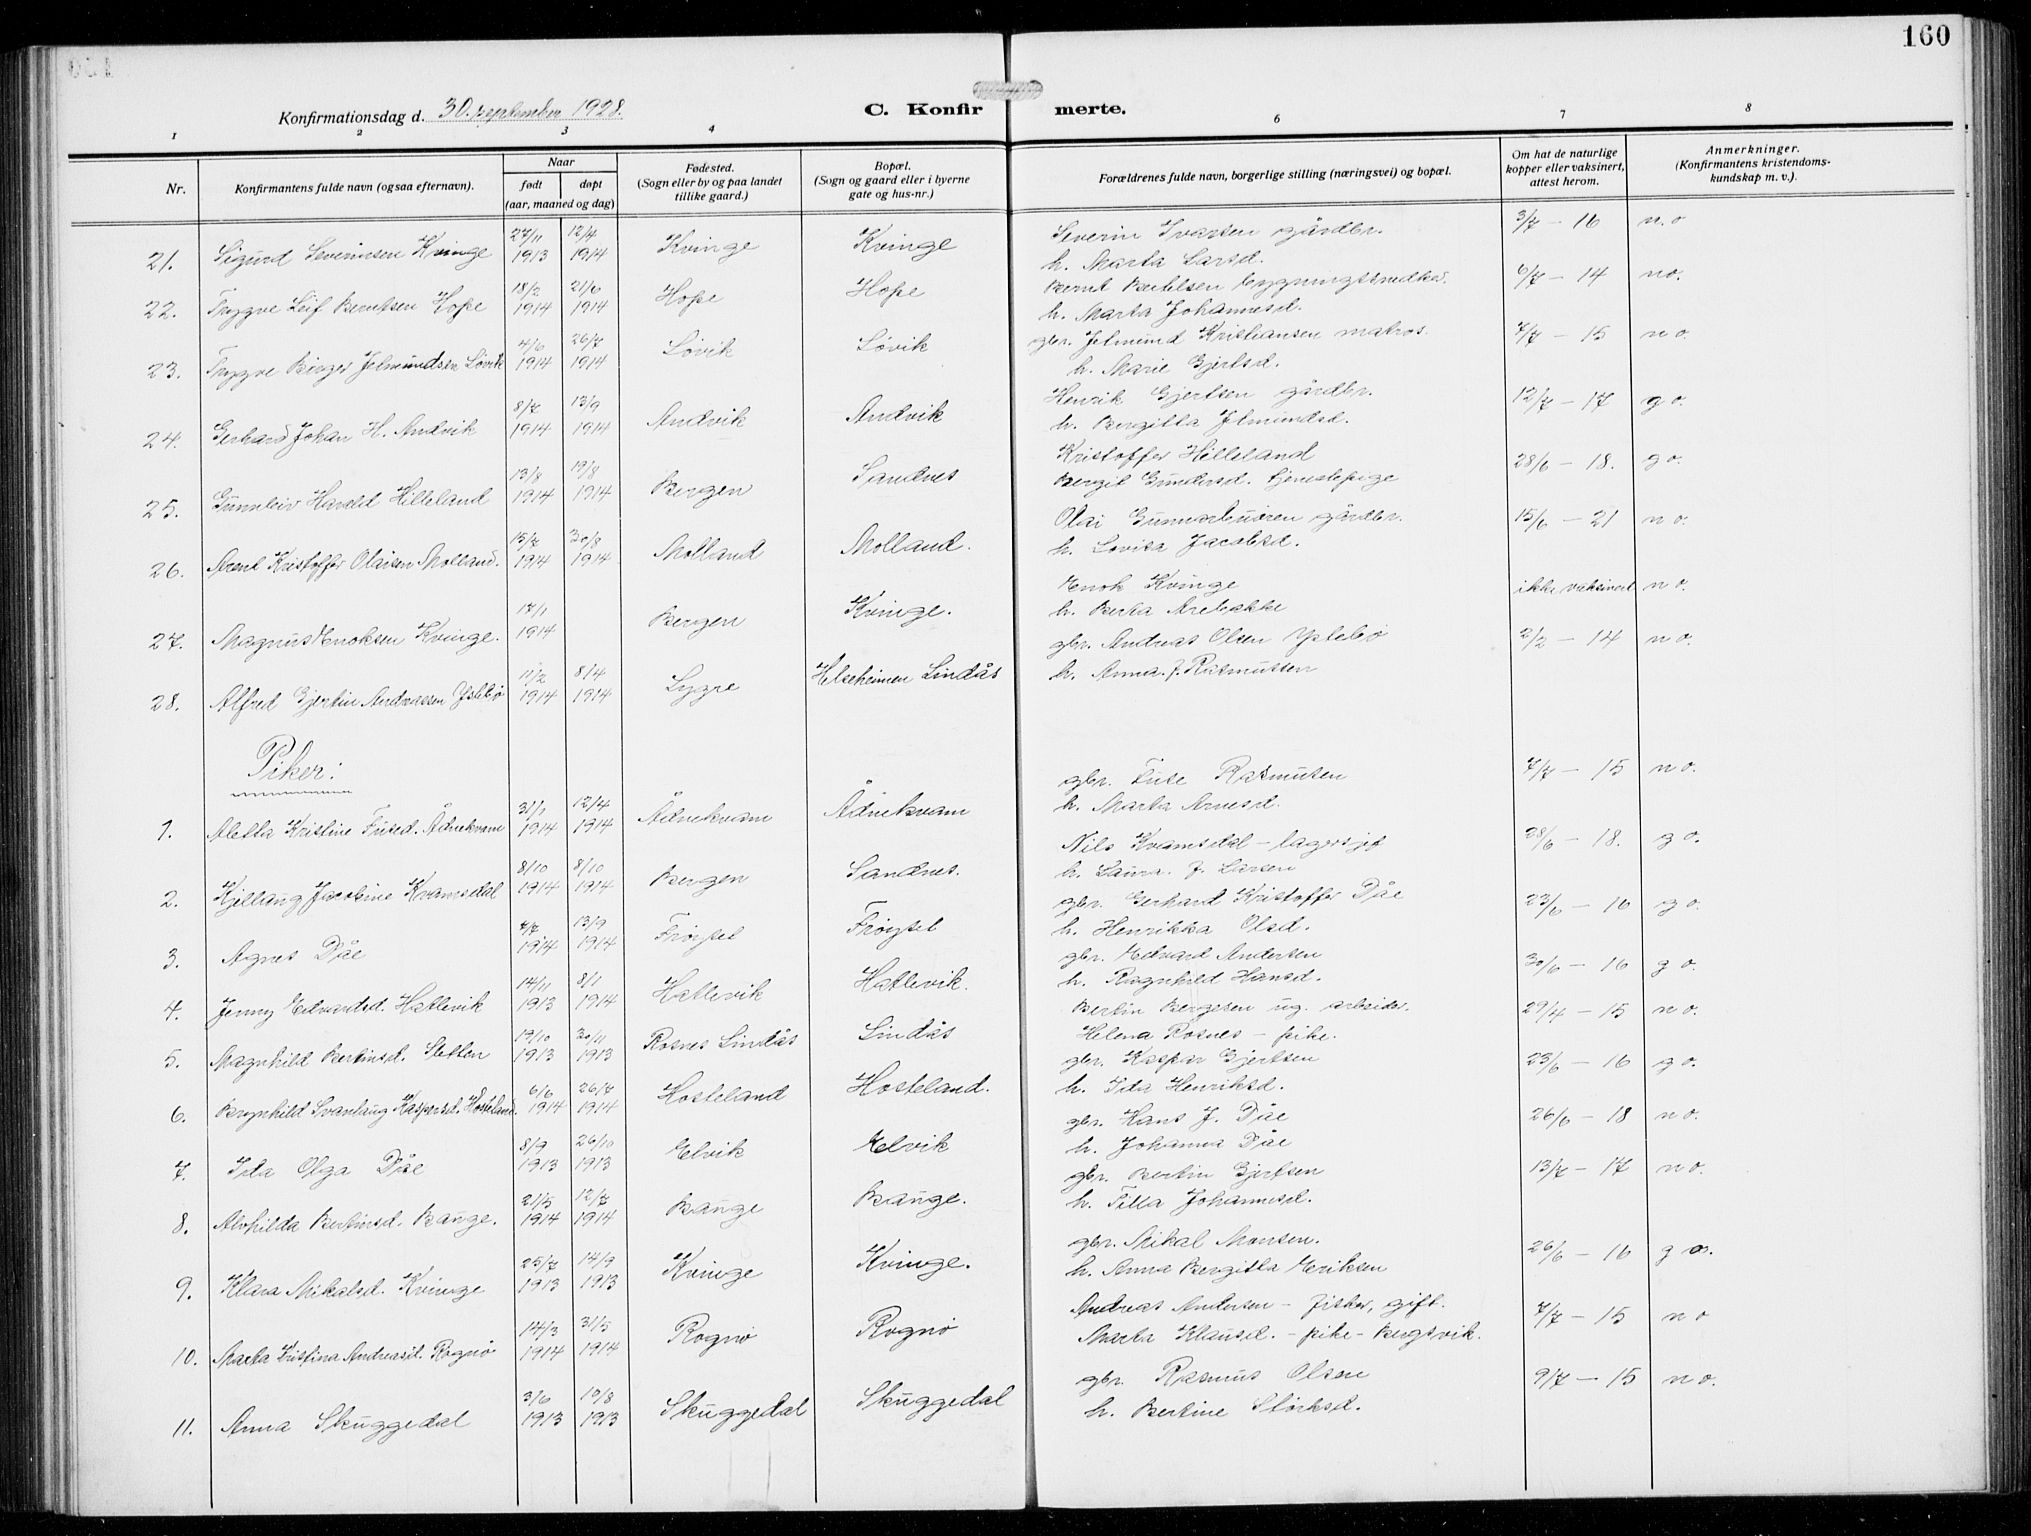 160
Konfirmationsdag d. 30. september 1928.
C. Konfirmerte.
1 2 3 4 6 7 8
Nr.
Konfirmantens fulde navn (og saa efternavn).
Naar
født døpt
(aar, maaned og dag)
Fødested.
(Sogn eller by og paa landet
tillike gaard.)
Bopæl.
(Sogn og gaard eller i byerne
gate og hus-nr.)
Forældrenes fulde navn, borgerlige stilling (næringsvei) og bopæl.
Om hat de naturlige
kopper eller vaksinert,
attest herom.
Anmerkninger.
(Konfirmantens kristendoms-
kundskap m. v.).
21. Sigurd Severinsen Kvinge 27/11 1913 12/4 1914 Kvinge Kvinge Severin Ivarsen gårdbr. 3/7 – 16 n.o
h. Marta Larsd.
22. Trygve Leif Berntsen Hope 18/2 1914 21/6 1914 Hope Hope Bernt Bertelsen bygningssnedker. 6/7 – 14 no.
h. Marta Johannesd.
23. Trygve Birger Jelmundsen Løvik 4/6 1914 26/7 1914 Løvik Løvik gbr. Jelmund Kristiansen matros. 7/7 – 15 n o.
h. Marie Gjertsd.
24. Gerhard Johan H. Andvik 8/7 1914 13/9 1914 Andvik Andvik Henrik Gjertsen gårdbr. 12/7 – 17 g o.
h. Bergitta Jelmundsd.
25. Gunnleiv Harald Hilleland 13/8 1914 19/8 1914 Bergen Sandnes Kristoffer Hilleland 28/6 – 18. g o.
Bergit Gundersd. tjenestepige
26. Arent Kristoffer Olaisen Molland. 15/7 1914 30/8 1914 Molland Molland. Olai gårdbr. 15/6 – 21 n o.
h. Lovisa Jacobsd.
27. Magnus Enoksen Kvinge. 17/1 1914 Bergen Kvinge. Enok Kvinge ikke vaksinert n o.
h. Berta Arebakke
28. Alfred Gjertin Andreassen Yslebø 11/2 1914 8/4 1914 Lygre Helseheimen Lindås gbr. Andreas Olsen Yslebø 2/2 – 14 n o.
h. Anna. J. Rasmussen
Piker:
1. Aletta Kristine Fused. Ådnekvam 31/1 1914 12/4 1914 Ådnekvam Ådnekvam gbr. Fuse Rasmusen 7/7 – 15 n o.
h. Marta Arnesd.
2. Kjellaug Jacobine Kvamsdal 8/10 1914 8/10 1914 Bergen Sandnes. Nils Kvamsdal – lagersjef 28/6 – 18. g o.
h. Laura. J. Larsen
3. Agnes Dåe 7/7 1914 13/9 1914 Frøyset Frøyset gbr. Gerhard Kristoffer Dåe 23/6 – 16 g o.
h. Henrikka Olsd.
4. Jenny Edvardsd. Hatlevik 14/11 1913 8/1 1914 Hatlevik Hatlevik. gbr. Edvard Andersen 30/6 – 16 g o.
h. Ragnhild Hansd.
5. Magnhild Bertinsd. Sletten 19/10 1913 30/11 1913 Rosnes Lindås Lindås Bertin Bergesen ug. arbeider. 29/4 – 15 n o.
Helena Rosnes – pike.
6. Brynhild Svanlaug Kaspersd. Hosteland. 6/6 1914 26/7 1914 Hosteland Hosteland. gbr. Kaspar Gjertsen 23/6 – 16 g o.
h. Ida Henriksd.
7. Ida Olga Dåe 8/9 1913 26/10 1913 Elvik Elvik gbr. Hans J. Dåe 26/6 – 18 n o.
h. Johanna Dåe
8. Alvhilda Bertinsd. Bauge. 21/5 1914 12/7 1914 Bauge Bauge. gbr. Bertin Gjertsen 13/7 – 17 n o.
h. Tilla Johannesd.
9. Klara Mikalsd. Kvinge 25/7 1913 14/9 1913 Kvinge Kvinge. gbr. Mikal Monsen. 26/6 – 16 g o.
h. Anna Bergitta Eriksen
10. Marta Kristina Andreasd. Rognø 14/3 1914 31/5 1914 Rognø Rognø Andreas Andersen – fisker, gift. 7/7 – 15 n o
Marta Klausd. – pike – Bergsvik.
11. Anna Skuggedal 3/6 1913 10/8 1913 Skuggedal Skuggedal gbr. Rasmus Olsen 9/7 – 15 n o.
h. Bertine Størksd.